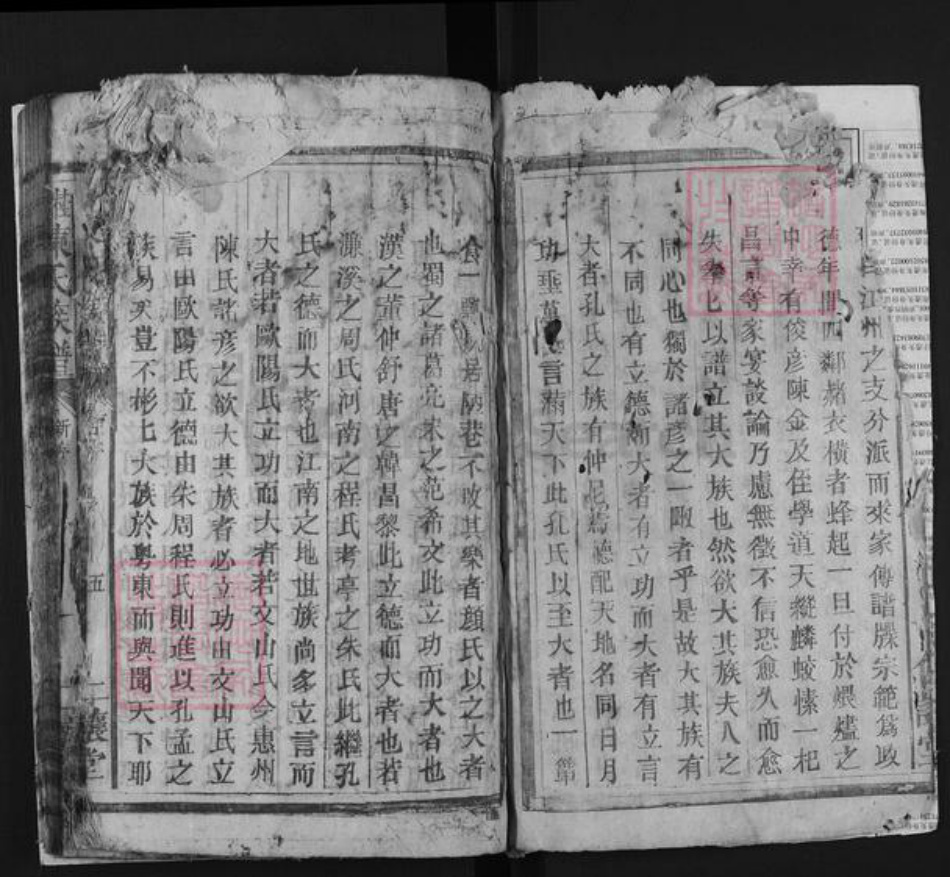 江州之支分派而來家傳譜牒宗範爲政
德年間四鄰赭衣橫者蜂起一旦付於煨燼之
中幸有俊彦陳金及侄學道天縱麟蛟愫一杞
昌言等家宴談論乃慮無徵不信恐愈久而愈
失拳匕以譜立其大族也然欲大其族夫人之
同心也獨於諸彦之一畞者乎是故大其族有
不同也有立德而大者有立功而大者有立言
大者孔氏之族有仲尼焉德配天地名同日月
功垂萬 言滿天下此孔氏以至大者也一簞
食一瓢 居陋巷不改其樂者顔氏以之大者
也蜀之諸葛亮宋之范希文此立功而大者也
漢之董仲舒唐之韓昌黎此立德而大者也若
濂溪之周氏河南之程氏考亭之朱氏此繼孔
氏之德而大者也江南之地世族尚多立言而
大者若歐陽氏立功而大者若文山氏今惠州
陳氏諸彦之欲大其族者必立功由文山氏立
言由歐陽氏立德由朱周程氏則進以孔孟之
族易天豈不彬匕大族於粵東而興聞天下耶
陳氏族譜
五
堂